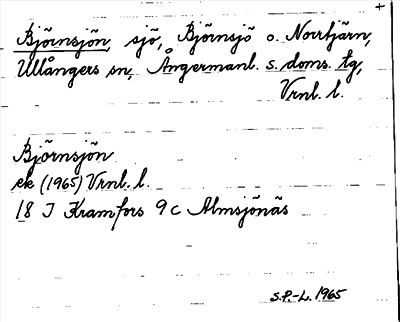 +
Björnsjön, sjö, Björnsjö o. Norrtjärn,
Ullångers sn, Ångermanl. s. doms. tg,
Vrnl. l.
Björnsjön
ek (1965) Vrnl. l.
18 J Kramfors 9 c Almsjönäs
S.P.-L. 1965